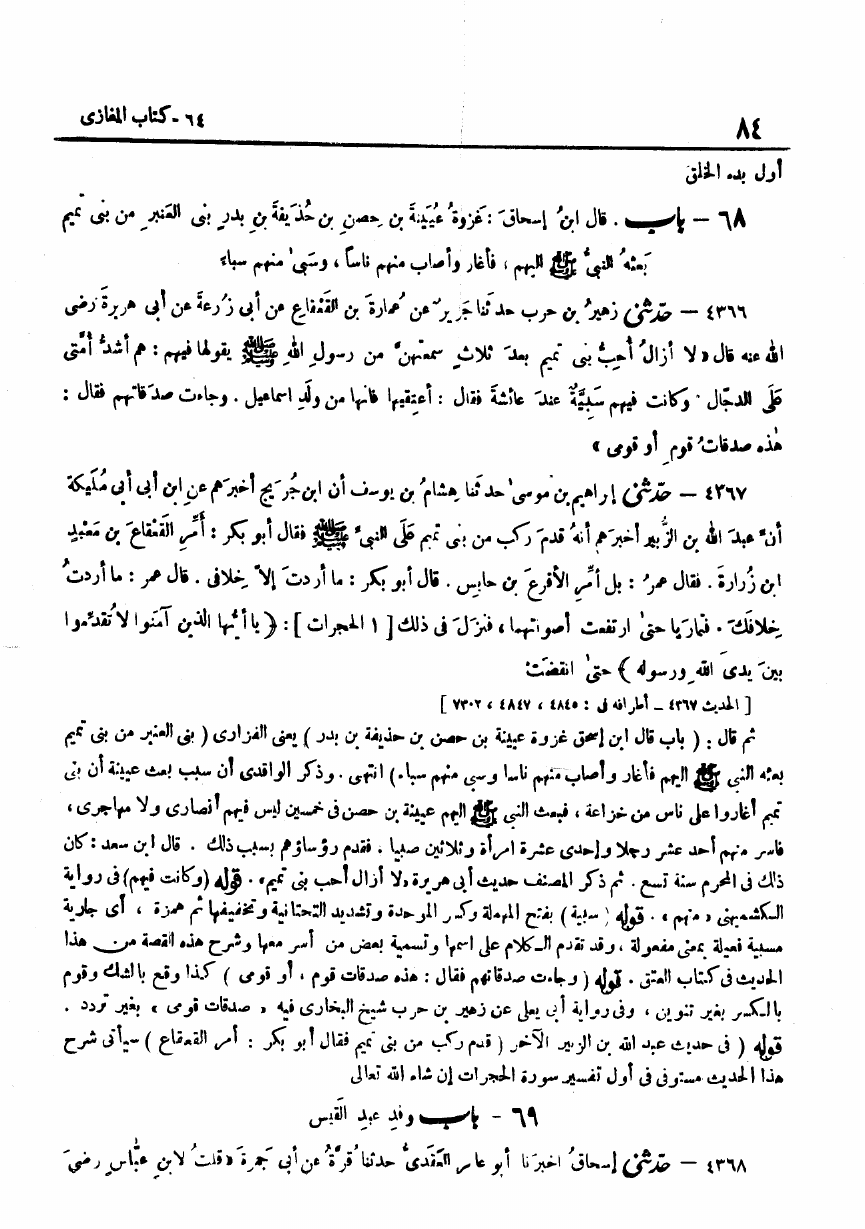 ٨٤ ٦٤ - كتاب المغازى
أول بدء الخلق
٦٨ - باب . قال ابنُ إسحاقَ : غزوةُ عُيَينةَ بن حِصنِ بن حُذَيفةَ بنِ بدرٍ بنى العَنبرِ من بنى تميم
بَعثهُ النبىُّ ﷺ إليهم ، فأغار وأصاب منهم ناساً ، وسَبىٰ منهم سباء
٤٣٦٦ - حدّثنى زهيرُ بن حرب حدثنا جَريرٌ عن عُمارةَ بن القَعْقاعِ عن أبى زُرعةَ عن أبى هريرةَ رضى
الله عنه قال « لا أزالُ أُحِبُّ بنى تميم بعدَ ثلاثٍ سمعتهنَّ من رسولِ اللهِ ﷺ يقولها فيهم : هم أشدُّ أُمَّتى
عَلَى الدجّال . وكانت فيهم سَبِيَّةٌ عندَ عائشةَ فقال : أعتِقيها فانها من ولَدِ اسماعيل . وجاءت صدَقاتهم فقال :
هٰذه صدقاتُ قومٍ أو قومى »
٤٣٦٧ - حدّثنى إبراهيم بن موسىٰ حدثنا هِشامُ بن يوسف أن ابن جُرَيج أخبرَهم عنِ ابن أبى أبى مُلَيكة
أنَّ عبدَ الله بن الزُّبير أخبرَهم أنهُ قدمَ ركب من بنى تميم عَلَى النبىِّ ﷺ فقال أبو بكر : أمِّرِ القَعْقاعَ بن مَعْبدِ
ابن زُرارةَ . فقال عمرُ : بل أمِّرِ الأقرعَ بن حابس . قال أبو بكر : ما أردتَ إلاَّ خلافى . قال عمر : ما أردتُ
خِلافَكَ . فتمارَيا حتىٰ ارتفعت أصواتهما ، فنزلَ فى ذلك [ ١ الحجرات ] : ﴿ يا أيُّها الذين آمَنوا لا تُقدِّموا
بينَ يدىِ اللهِ ورسوله ﴾ حتىٰ انقضَتْ
[ الحديث ٤٣٦٧ - أطرافه فى : ٤٨٤٥ ، ٤٨٤٧ ، ٧٣٠٢ ]
ثم قال : ( باب قال ابن إسحق غزوة عيينة بن حصن بن حذيفة بن بدر ) يعنى الفزارى ( بنى العنبر من بنى تميم
بعثه النبى ﷺ اليهم فأغار وأصاب منهم ناسا وسبى منهم سباء ) انتهى . وذكر الواقدى أن سبب بعث عيينة أن بنى
تميم أغاروا على ناس من خزاعة ، فبعث النبى ﷺ اليهم عيينة بن حصن فى خمسين ليس فيهم أنصارى ولا مهاجرى ،
فاسر منهم أحد عشر رجلا وإحدى عشرة امرأة وثلاثين صبيا ، فقدم رؤساؤهم بسبب ذلك . قال ابن سعد : كان
ذلك فى المحرم سنة تسع . ثم ذكر المصنف حديث أبى هريرة « لا أزال أحب بنى تميم » . قوله ( وكانت فيهم ) فى رواية
الكشميهنى « منهم » . قوله ( سبية ) بفتح المهملة وكسر الموحدة وتشديد التحتانية وتخفيفها ثم همزة ، أى جارية
مسبية فعيلة بمعنى مفعولة ، وقد تقدم الكلام على اسمها وتسمية بعض من أسر معها وشرح هذه القصة من هذا
الحديث فى كتاب العتق . قوله ( وجاءت صدقاتهم فقال : هذه صدقات قوم ، أو قومى ) كذا وقع بالشك وقوم
بالكسر بغير تنوين ، وفى رواية أبى يعلى عن زهير بن حرب شيخ البخارى فيه « صدقات قومى » بغير تردد .
قوله ( فى حديث عبد الله بن الزبير الآخر ( قدم ركب من بنى تميم فقال أبو بكر : أمر القعقاع ) سيأتى شرح
هذا الحديث مستوفى فى أول تفسير سورة الحجرات إن شاء الله تعالى
٦٩ - باب وفدِ عبدِ القَيس
٤٣٦٨ - حدّثنى إسحاقُ اخبرَنا أبو عامر العَقَدىُّ حدثنا قرَّةُ عن أبى جَمرةَ « قلتُ لابنِ عبّاسٍ رضىَ